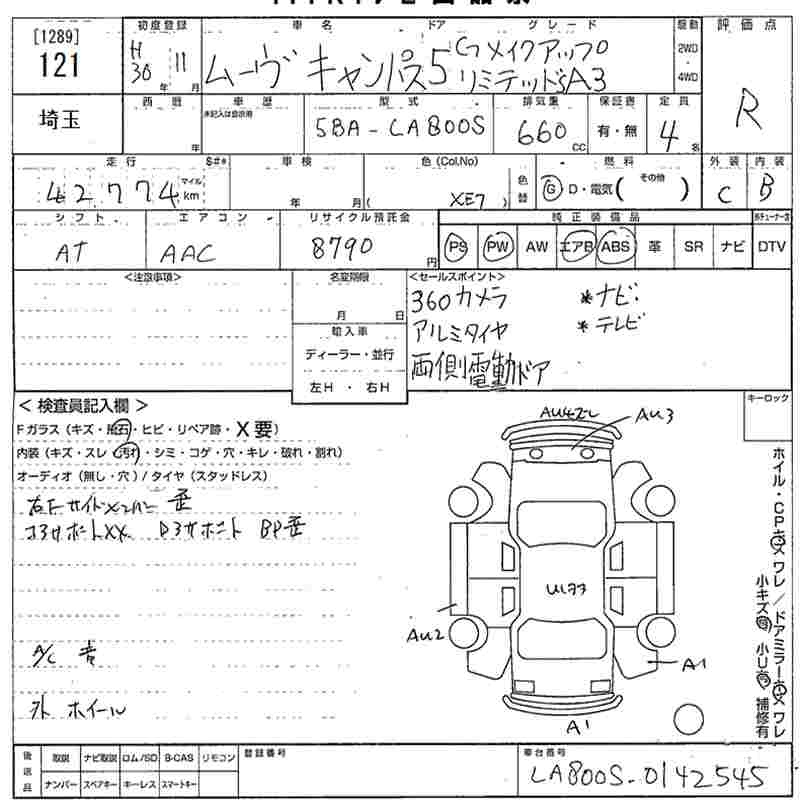 [1289]
121
初度登録
H 30 年 11 月
車名 ドア グレード
ムーヴ キャンパス 5 Gメイクアップ
リミテッドSA3
駆動
2WD
・
4WD
評価点
R
埼玉
西暦
年
車歴
未記入は自家用
型式
5BA-LA800S
排気量
660 CC
保証書
有・無
定員
4 名
走行
42774 マイル km
S#*
車検
年 月
色 (Col.No)
( XE7 )
色替
燃料
G D・電気( その他 )
外装
C
内装
B
シフト
AT
エアコン
AAC
リサイクル預託金
8790 円
純正装備品
PS PW AW エアB ABS 革 SR ナビ DTV
<注意事項>
名変期限
月 日
輸入車
ディーラー・並行
左H ・ 右H
<セールスポイント>
360カメラ *ナビ
アルミタイヤ *テレビ
両側電動ドア
< 検査員記入欄 >
Fガラス (キズ・飛石・ヒビ・リペア跡・X要)
内装 (キズ・スレ・汚れ・シミ・コゲ・穴・キレ・破れ・割れ)
オーディオ (無し・穴) / タイヤ (スタッドレス)
右Fサイドメンバー 歪
コアサポートXX ロアサポート BP歪
A/C 音
外 ホイール
キーロック
AU3
U177
AU2
A1
A1
後送品
取説 ナビ取説 ロム/SD B-CAS リモコン
ナンバー スペアキー キーレス スマートキー
登録番号
車台番号
LA800S-0142545